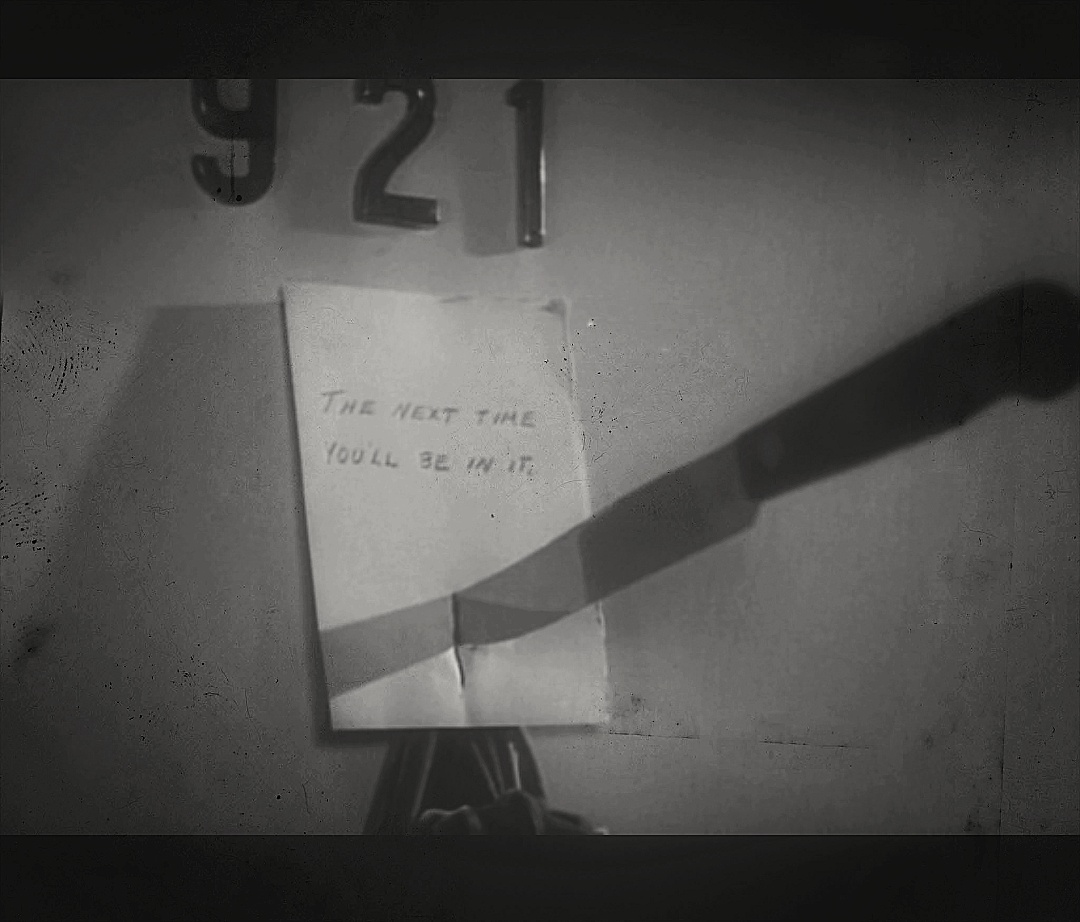 921
THE NEXT TIME
YOU'LL BE IN IT.